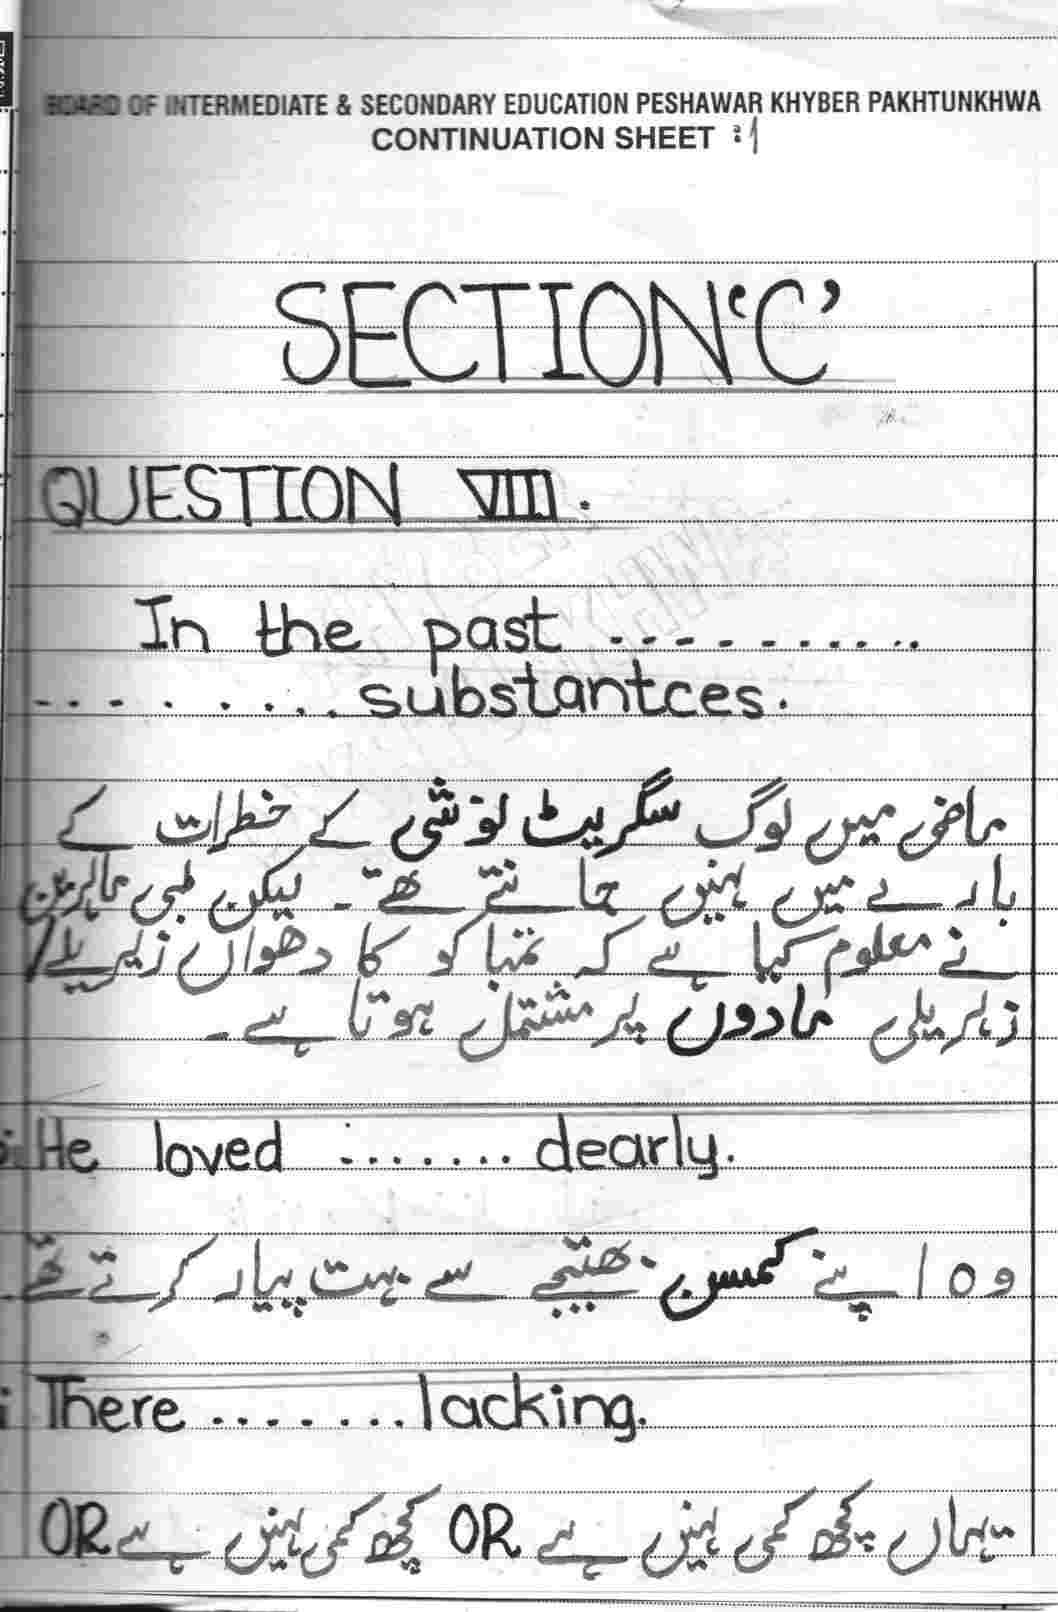 BOARD OF INTERMEDIATE & SECONDARY EDUCATION PESHAWAR KHYBER PAKHTUNKHWA
CONTINUATION SHEET :1
SECTION 'C'
QUESTION VIII.
In the past ..........
......... substantces.
ماضی میں لوگ سگریٹ نوشی کے خطرات کے
بارے میں نہیں جانتے تھے ۔ لیکن طبی ماہرین
نے معلوم کیا ہے کہ تمباکو کا دھواں زہریلے/
زہریلی مادوں پر مشتمل ہوتا ہے ۔
He loved ....... dearly.
وہ اپنے کمسن بھتیجے سے بہت پیار کرتے تھے
There ....... lacking.
یہاں کچھ کمی نہیں ہے OR کچھ کمی نہیں ہے OR